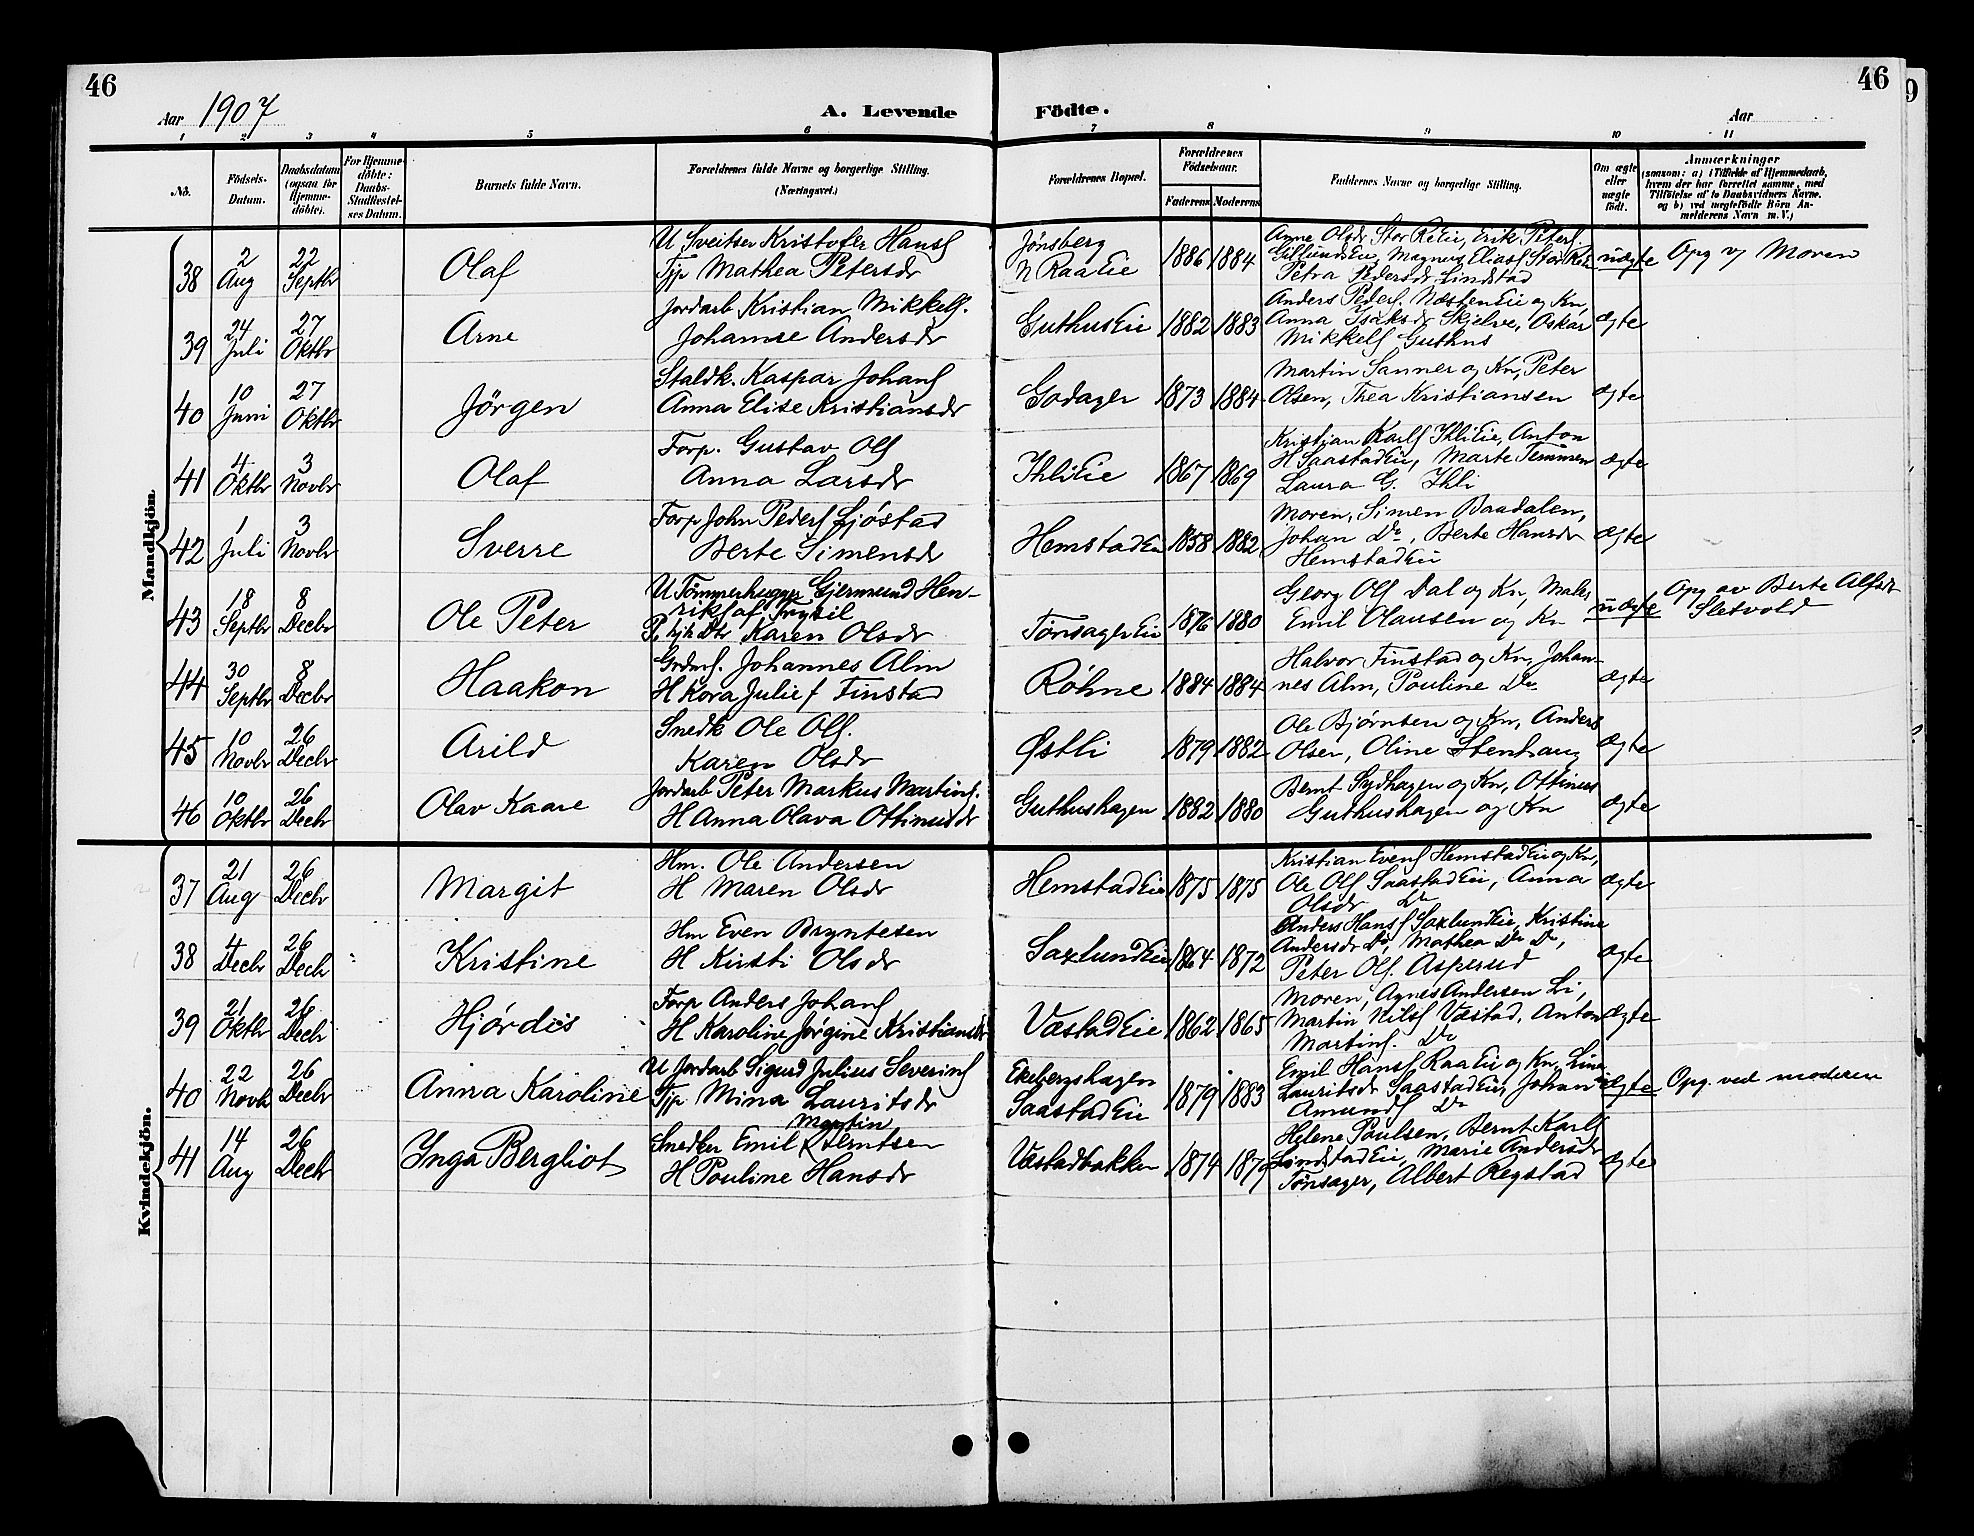 46
46
Aar 1907
A. Levende Födte.
Aar
1 2 3 4 5 6 7 8 9 10 11
No.
Födsels-Datum.
Daabsdatum (ogsaa for Hjemme-döbte).
For Hjemme-döbte: Daabs-Stadfæstel-ses Datum.
Barnets fulde Navn.
Forældrenes fulde Navne og borgerlige Stilling. (Næringsvei.)
Forældrenes Bopæl.
Forældrenes Födselsaar.
Faderens Moderens
Faddernes Navne og borgerlige Stilling.
Om ægte eller uægte födt.
Anmærkninger
(saasom: a) i Tilfælde af Hjemmedaab, hvem der har forrettet samme, med Tilföielse af to Daabsvidners Navne, og b) ved uægtefödte Börn An-melderens Navn m. V.)
Mandkjön.
38
2 Aug
22 Septbr
Olaf
U Sveitser Kristofer Hans
Tjp Mathea Petersdr
Jønsberg
N RaaEie
1886 1884
Anne Olsdr Stor ReEie, Erik Peters.
GillundEie, Magnus Elias Stor Ree
Petra Pedersdr Lindstad
uægte
Opg v/ Moren
39
24 Juli
27 Oktbr
Arne
Jordarb Kristian Mikkels.
Johanne Andersdr
GuthusEie
1882 1883
Anders Peders. NæstenEie og Kn,
Anna Isaksdr Skjelve, Oskar
Mikkels Guthus
ægte
40
10 Juni
27 Oktbr
Jørgen
Staldk. Kaspar Johans
Anna Elise Kristiansdr
Godager
1873 1884
Martin Sanner og Kn, Peter
Olsen, Thea Kristiansen
ægte
41
4 Oktbr
3 Novbr
Olaf
Forp. Gustav Ols
Anna Larsdr
IhliEie
1867 1869
Kristian Karls IhliEie, Anton
H SaastadEie, Marte Temmen
Laura G. Ihli
ægte
42
1 Juli
3 Novbr
Sverre
Forp John Peders Sjøstad
Berte Simensdr
HemstadEie
1858 1882
Moren, Simen Baadalen,
Johan Do, Berte Hansdr
HemstadEie
ægte
43
18 Septbr
8 Decbr
Ole Peter
U Tømmerhugger Gjermund Hen-
riks af Trysil
Karen Olsdr
TønsagerEie
1876 1880
Georg Ols Dal og Kn,
Emil Olausen og Kn
uægte
Opg av Berte Alfsdr
Sletvold
44
30 Septbr
8 Decbr
Haakon
Grdm. Johannes Alm
H Kora Julie f Finstad
Røhne
1884 1884
Halvor Finstad og Kn, Johan-
nes Alm, Pouline Do
ægte
45
10 Novbr
26 Decbr
Arild
Snedk Ole Ols.
Karen Olsdr
Østli
1879 1882
Ole Bjørnsen og Kn, Anders
Olsen, Oline Stenhaug
ægte
46
10 Oktbr
26 Decbr
Olav Kaare
Jordarb Peter Markus Martins.
H Anna Olava Ottinusdr
Guthushagen
1882 1880
Bernt Sydhagen og Kn, Ottinus
Guthushagen og Kn
ægte
Kvindekjön.
37
21 Aug
26 Decbr
Margit
Hm. Ole Andersen
H Maren Olsdr
HemstadEie
1875 1875
Kristian Evens HemstadEie og Kn,
Ole Ols SaastadEie, Anna
Olsdr Do
ægte
38
4 Decbr
26 Decbr
Kristine
Hm Even Bryntesen
H Kirsti Olsdr
SaxlundEie
1864 1872
Anders Hans SaxlundEie, Kristine
Andersdr Do, Mathea Do Do,
Peter Ols. Asperud
ægte
39
21 Oktbr
26 Decbr
Hjørdis
Forp Anders Johans
H Karoline Jørgine Kristiansdr
VæstadEie
1862 1865
Moren, Agnes Andersen Li,
Martin Nils Væstad, Anton
Martins. Do
ægte
40
22 Novb
26 Decbr
Anna Karoline
U Jordarb Sigurd Julius Severins
Tjp Mina Lauritsdr
Ekebergshagen
SaastadEie
1879 1883
Emil Hans RaaEie og Kn, Lina
Lauritsdr SaastadEie, Johan
Amunds Do
uægte
Opg. ved moderen
41
14 Aug
26 Decbr
Inga Bergliot
Martin
Snedker Emil Berntsen
H Pouline Hansdr
Væstadbakken
1874 1879
Helene Paulsen, Bernt Karls
LindstadEie, Marie Andersdr
Tønsager, Albert Regstad
ægte